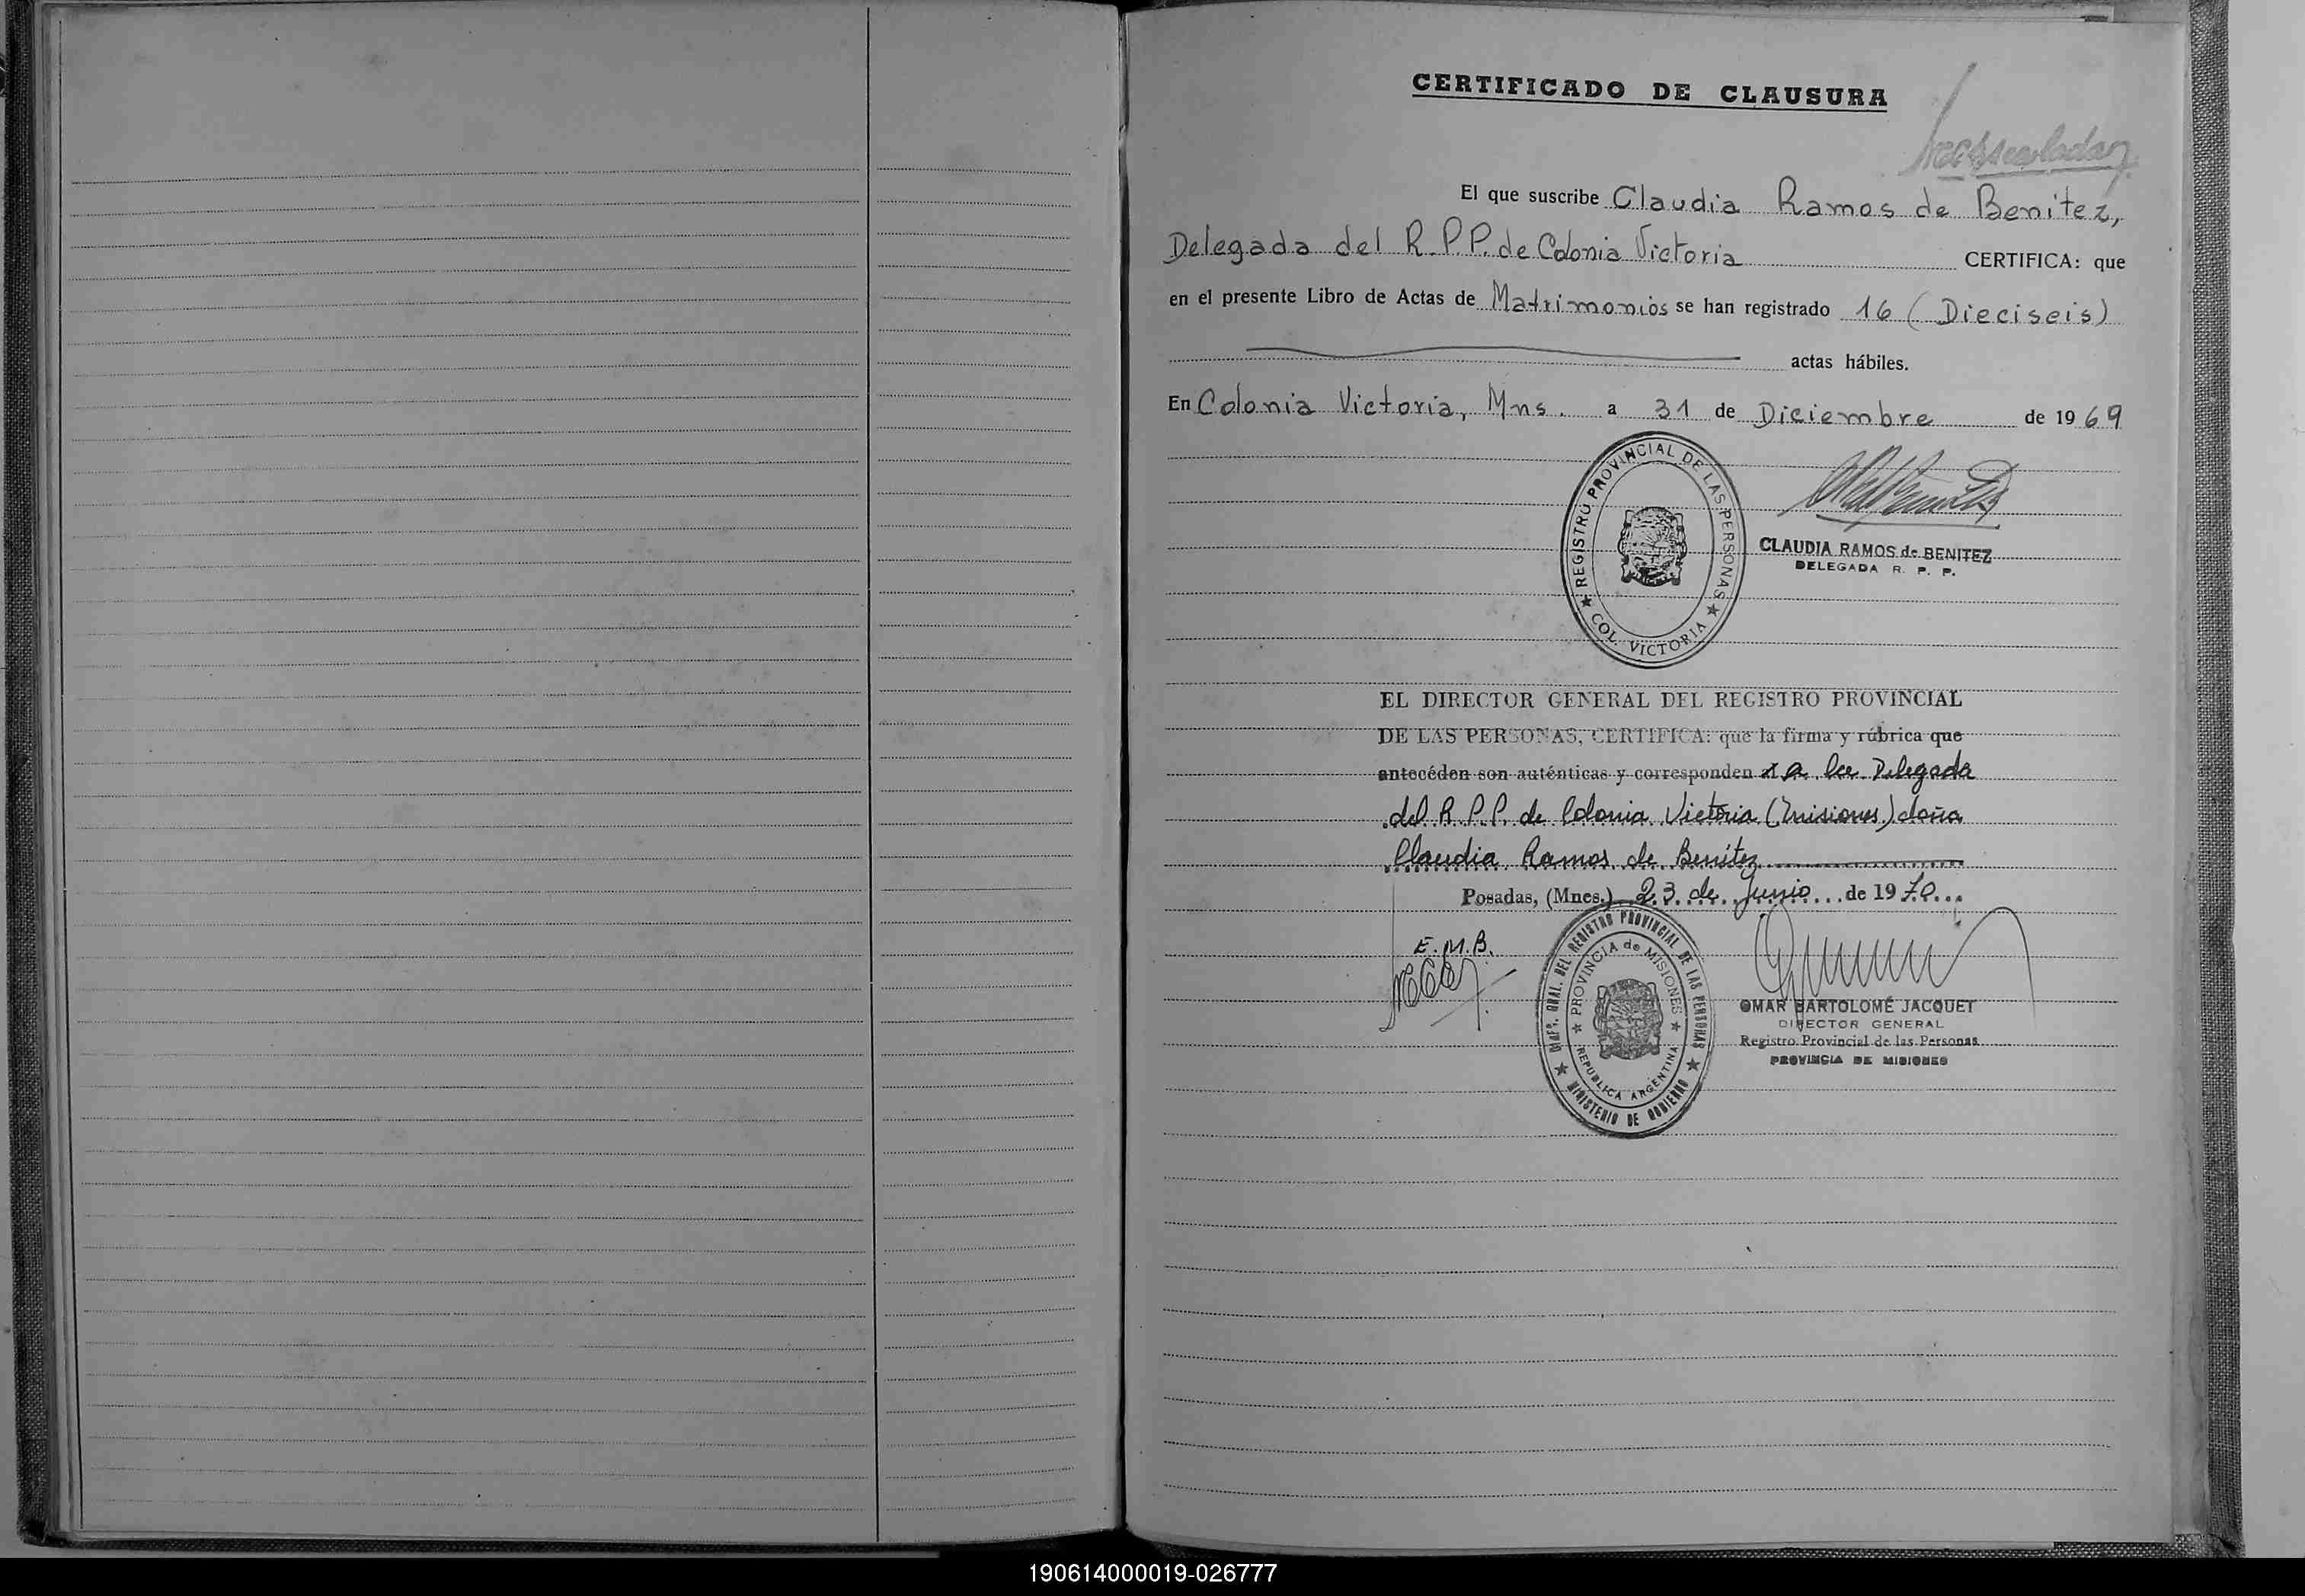 CERTIFICADO DE CLAUSURA
El que suscribe Claudia Ramos de Benitez,
Delegada del R.P.P. de Colonia Victoria CERTIFICA: que
en el presente Libro de Actas de Matrimonios se han registrado 16 (Dieciseis)
actas hábiles.
En Colonia Victoria, Mns. a 31 de Diciembre de 1969
★ REGISTRO PROVINCIAL DE LAS PERSONAS ★
COL. VICTORIA
CLAUDIA RAMOS de BENITEZ
DELEGADA R. P. P.
EL DIRECTOR GENERAL DEL REGISTRO PROVINCIAL
DE LAS PERSONAS, CERTIFICA: que la firma y rúbrica que
antecéden son auténticas y corresponden a la Delegada
del R.P.P. de Colonia Victoria (Misiones) doña
Claudia Ramos de Benítez
Posadas, (Mnes.) 23 de Junio de 1970
E.M.B.
DIREC. GRAL. DEL REGISTRO PROVINCIAL DE LAS PERSONAS
★ MINISTERIO DE GOBIERNO ★
★ PROVINCIA de MISIONES ★
REPUBLICA ARGENTINA
OMAR BARTOLOMÉ JACQUET
DIRECTOR GENERAL
Registro Provincial de las Personas
PROVINCIA DE MISIONES
190614000019-026777